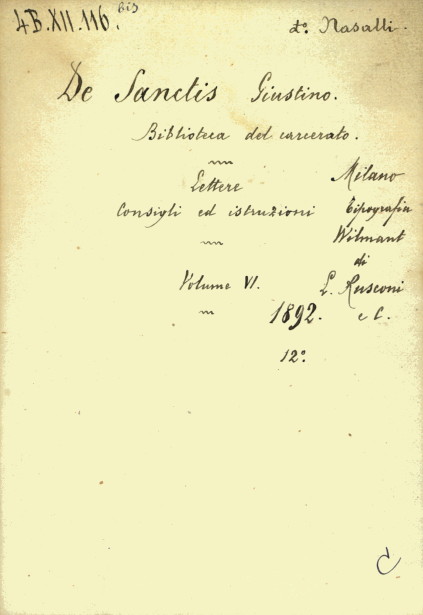 4B.XII.116. bis
d.º Nasalli.
De Sanctis Giustino.
Biblioteca del carcerato.
Lettere
Consigli ed istruzioni
Volume VI.
Milano
Tipografia
Wilmant
di
L. Rusconi
e C.
1892.
12º.
C